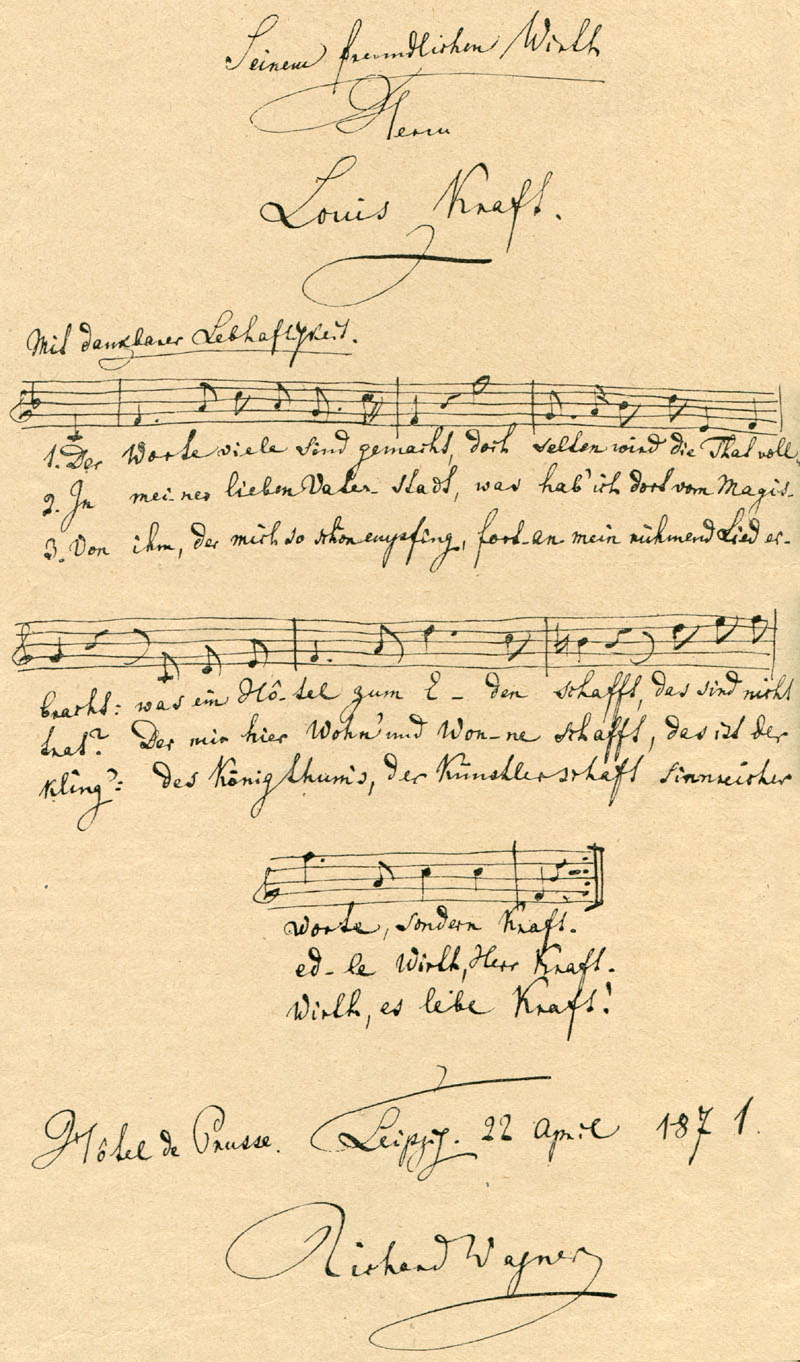 Seinem freundlichen Wirth
Herrn
Louis Kraft.
Mit dankbarer Lebhaftigkeit.
1. Der Worte viele sind gemacht, doch selten wird die That voll-
2. In mei-ner lieben Vater-stadt, was hab' ich dort vom Magis-
3. Von ihm, der mich so schön empfing, fort-an mein rühmend Lied er-
bracht: was ein Hô-tel zum E-den schafft, das sind nicht
trat? Der mir hier Wohn' und Won-ne schafft, das ist der
kling': des Königthum's, der Künstlerschaft sinnreicher
Worte, sondern Kraft.
ed-le Wirth, Herr Kraft.
Wirth, es lebe Kraft!
Hôtel de Prusse. Leipzig. 22 April 1871.
Richard Wagner